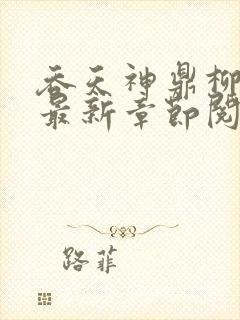 吞天神鼎柳
最新章节阅
路菲